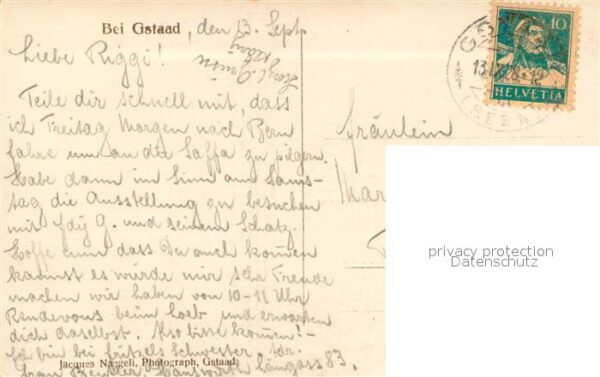 Bei Gstaad, den 13. Sept.
Liebe Riggi!
Herzl. Grüsse
Teile dir schnell mit, dass
ich Freitag Morgen nach Bern
fahre um an die Saffa zu pilgern.
Habe dann im Sinn am Sams-
tag die Ausstellung zu besuchen
mit Edy G. und seinem Schatz.
Hoffe nun dass Du auch kommen
kannst es würde mir sehr Freude
machen wir haben von 10-11 Uhr
Rendevous beim Loeb und erwarten
dich daselbst. Also bitte kommen!-
Ich bin bei Fritzels Schwester. Adr.
Frau Beutler, Länggass 83.
Jacques Nægeli, Photograph, Gstaad.
Fräulein
Mar
10
HELVETIA
privacy protection
Datenschutz